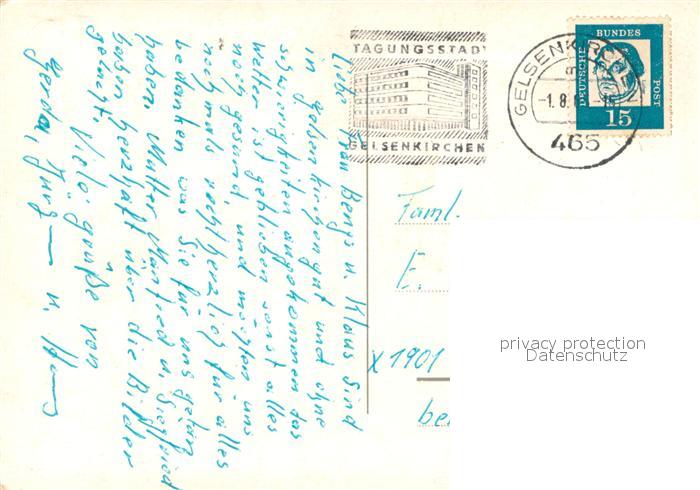 Liebe Frau Bengs u. Klaus Sind
in Gelsenkirchen gut und ohne
swirigkeiten angekommen das
wetter ist geblieben sonst alles
noch gesund und möchten uns
nochmals recht herzlich für alles
bedanken was Sie für uns getan
haben Mutter Manfred u. Siegfried
haben herzhaft über die Bilder
gelacht.
Viele grüße von
Gerda, u.
TAGUNGSSTADT
GELSENKIRCHEN
GELSENKIRCHEN
-1.8.
465
DEUTSCHE BUNDESPOST
15
Faml.
E.
X 1901
be
privacy protection
Datenschutz